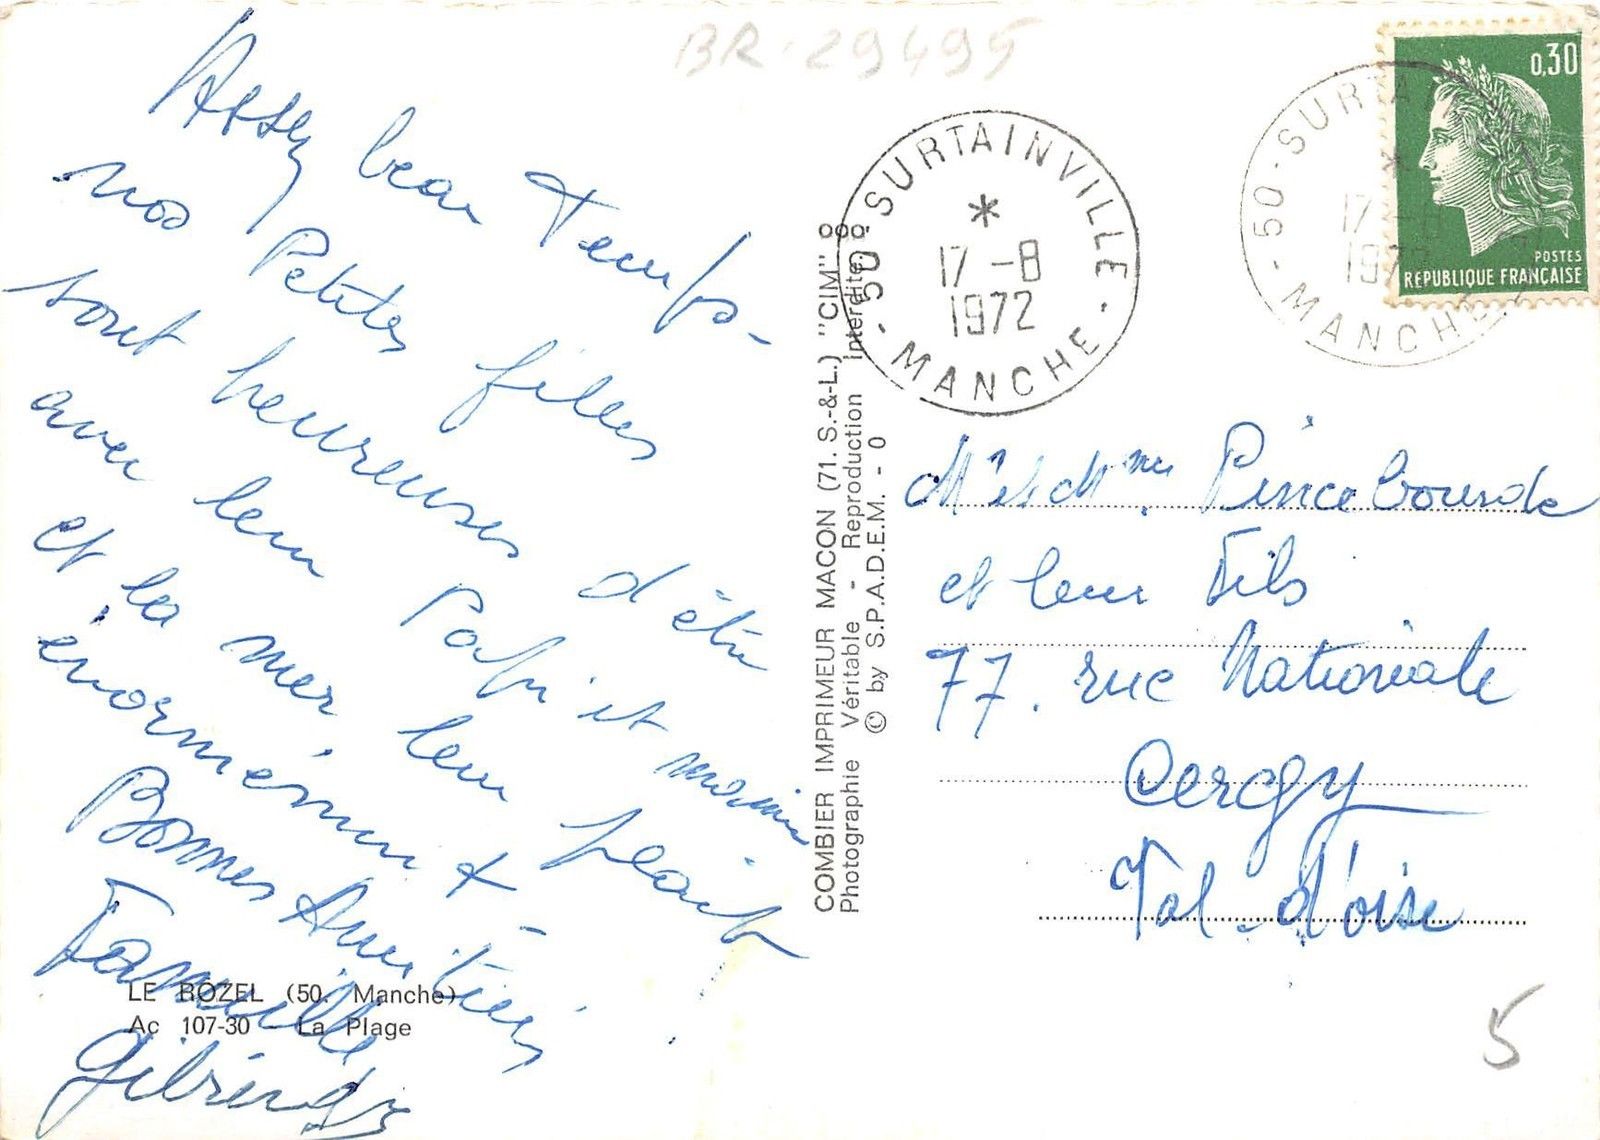 BR. 29495
Assez beau temps-
nos Petites filles
sont heureuses d'être
avec leur Papi et mamie
et la mer, leur plait
énormément -
Bonnes Amitiés
Famille
LE ROZEL (50. Manche)
Ac 107-30 - La Plage
COMBIER IMPRIMEUR MACON (71. S.-&-L.) "CIM"
Photographie Véritable - Reproduction Interdite
© by S.P.A.D.E.M. - 0
50 - SURTAINVILLE
*
17 -8
1972
- MANCHE -
50 - SURTAI
*
17 -8
1972
MANCHE
0,30
POSTES
REPUBLIQUE FRANÇAISE
Mr et Mme Pincebourde
et leur Fils
77. rue Nationale
Cergy
Val d'oise
5